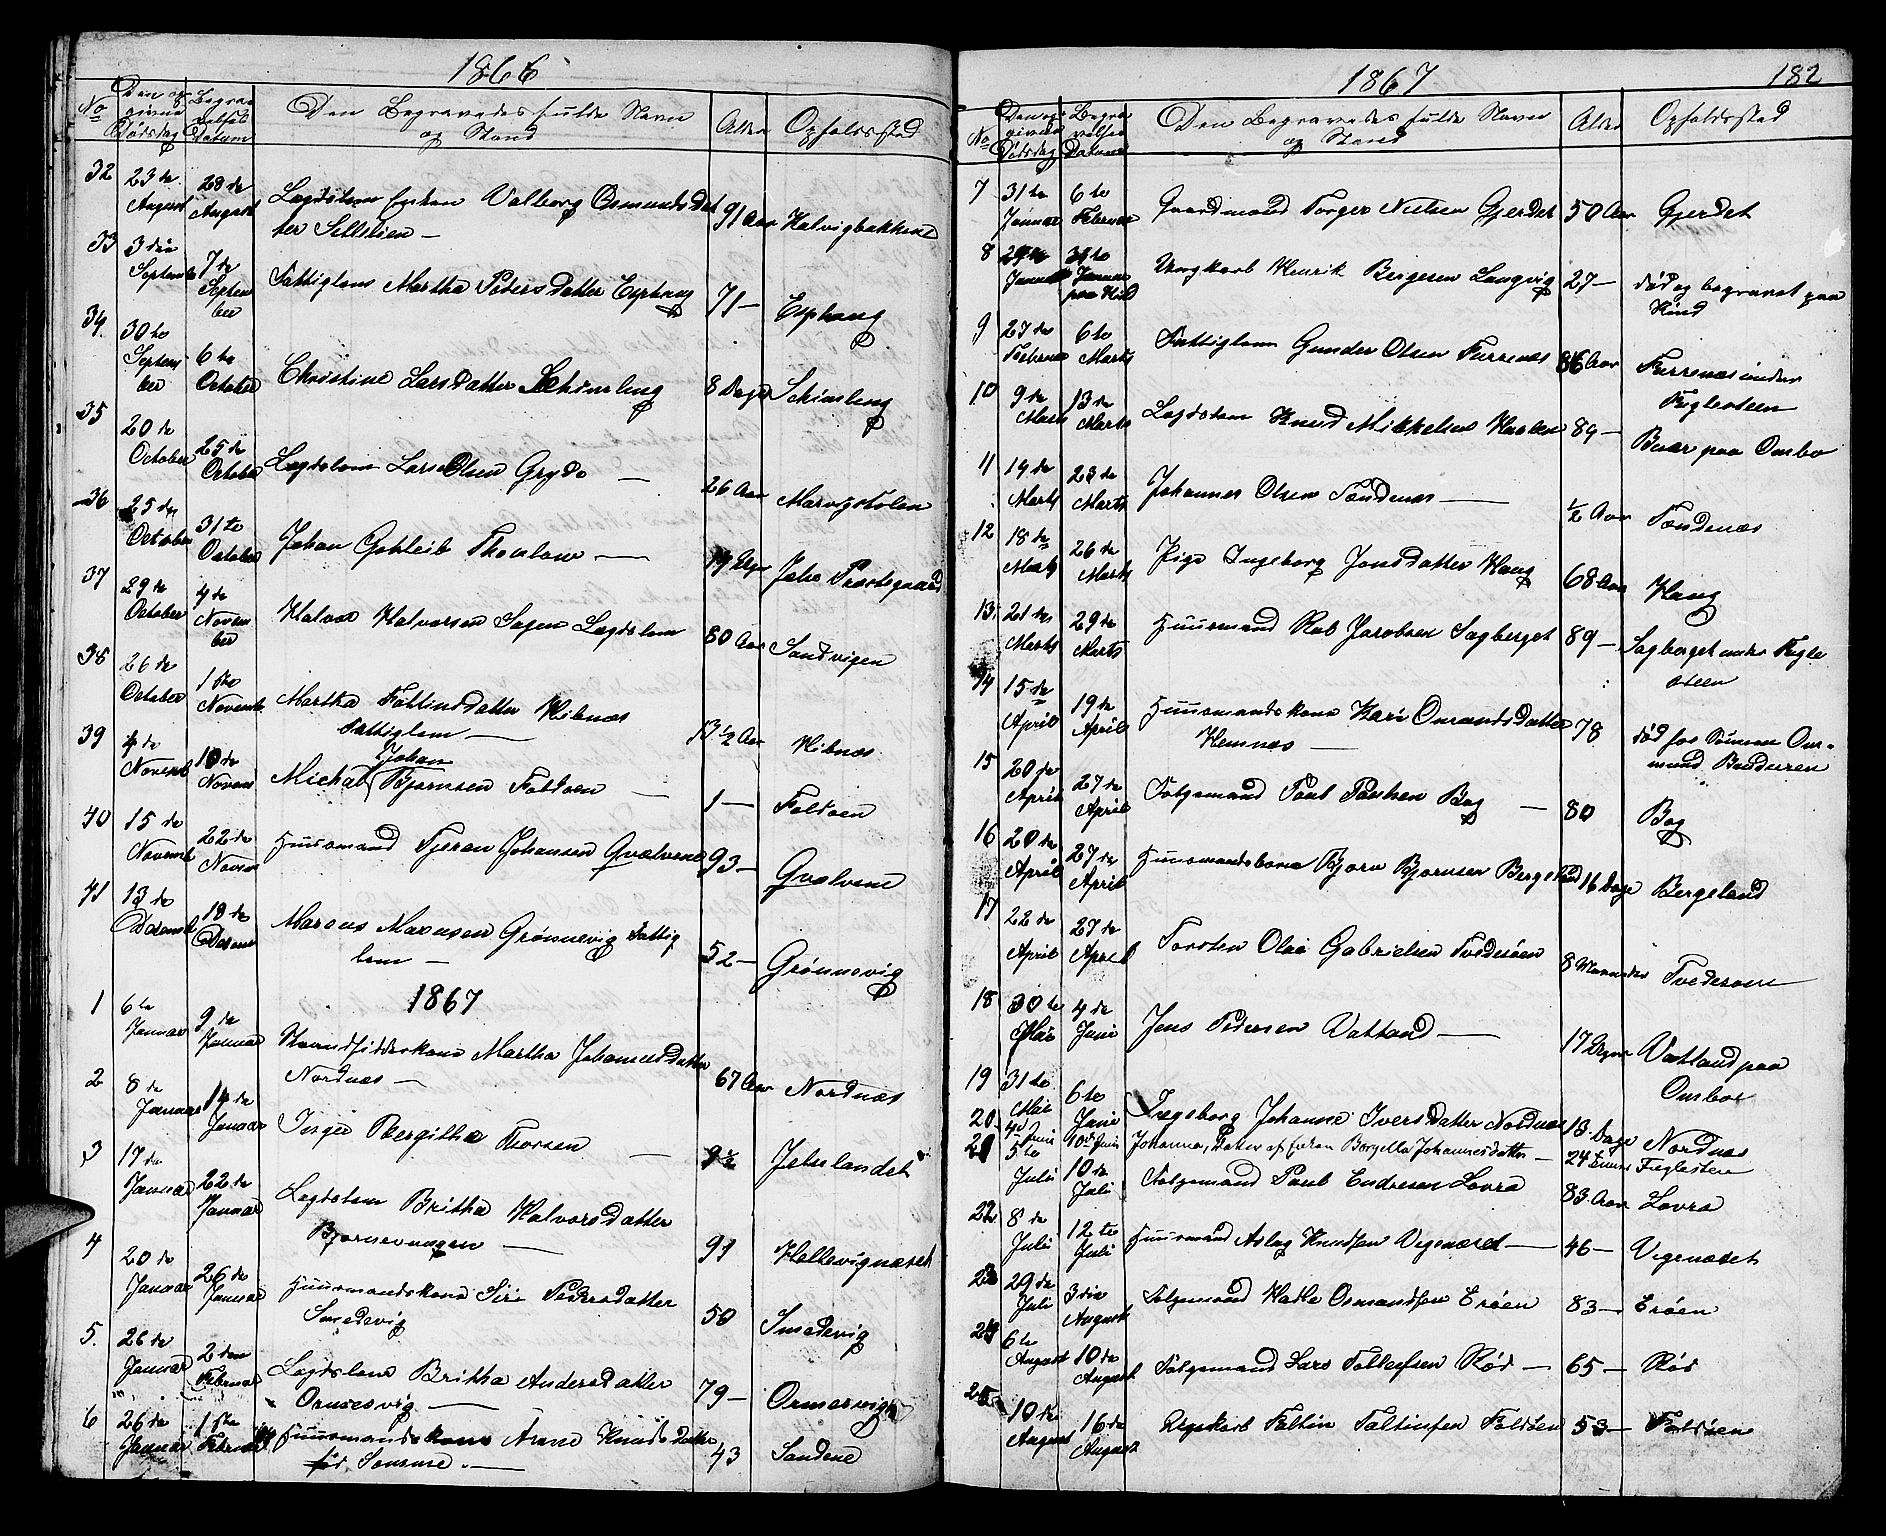 1866
No
Den opgivne Dødsdag
Begravelses Datum
Den Begravedes fulde Navn og Stand
Alder
Opholdssted
32 23de August 28de August Lægdslem Enken Valborg Osmundsdatter 91 Aar Halvigbakken
33 3die Septemb 7de September Fattiglem Martha Pedersdatter Erphaug 71 — Erphaug
34. 30te September 6te October Christine Larsdatter Schimling 8 Dage Schimling
35 20de October 25de October Lægdslem Lars Olsen Gryde — 26 Aar Marvigstølen
36 25de October 31te October Johan Gotleib Thomlem — Jelse Præstegaard
37 29de October 4de November Halvor Halvorsen Sagen Lægdslem 80 Aar Sandvigen
38 26de October 1ste Novemb Martha Foltinsdatter Hibnæs
Fattiglem — 13 1/2 Aar Hibnæs
39 4de Novemb 10de Novem Michal Johan Bjørnsen Foldøen — 1 — Foldøen
40 15de Novemb 22de Novem Huusmand Tjeran Johansen Qvælvene 93 — Qvælvene
41 13de Decemb 18de Decem Marcus Maensen Grønnevig Fattig
lem — 52 — Grønnevig
1867
1 6te Januar 9de Januar Johannesdatter
Nordnæs — 67 Aar Nordnæs
2 8de Januar 14de Januar Inger Bergitha Thorsen — 9 1/2 Jelselandet
3 17de Januar 22de Januar Lægdslem Britha Halvorsdatter
Bjørnevaagen — 91 Hallevignæset
4 20de Januar 26de Januar Huusmandskone Siri Pedersdatter
Smedevig 50 Smedevig
5. 26de Januar 2den Februar Lægdslem Britha Andersdatter
Ormesvig — 79 — Ormesvig
6 26de Januar 1ste Februar Huusmandskone Anne Knudsdatter
43 Sandene
1867
182
No
Den opgivne Dødsdag
Begravelses Datum
Den Begravedes fulde Navn og Stand
Alder
Opholdssted
7 31te Januar 6te Februar Gaardmand Torger Nielsen Gjerdet 50 Aar Gjerdet
8 Januar Januar paa Hid Ungkarl Henrik Bergesen Langvig 27 — død og begravet paa
9 27de Februar 6te Marts Fattiglem Gunder Olsen Furrenæs 86 Aar Furrenæs under
Figlesteen
10 9de Marts 13de Marts Lægdslem Knud Mikkelsen 89 — Buer paa Ombo
11 14de Marts 23de Marts Johannes Olsen Tændenæs — 1/2 Aar Tændenæs
12 18de Marts 26de Marts Pige Ingeborg Jonsdatter Haug 68 Aar Haug
13. 21de Marts 29de Marts Huusmand Rob Jacobsen Sagberget 89 — Sagberget under Figle
steen
14 15de April 19de April Huusmandskone Kari Omundsdatter
Hemnæs — 78 død hos Sønnen Om-
mund
15 20de April 27de April Følgemand Poul Poulsen Bog — 80 Bog
16 20de April 27de April Huusmandsbarn Bjørn Bjørnsen Bergeland 16 Dage Bergeland
17 22de April 27de April Torsten Olai Gabrielsen Tvedesøen 8 Maaneder Tvedesøen
18 30te Mai 4de Juni Jens Pedersen Vatland — 17 Vatland paa
Omboe
19 31te Mai 6te Juni Ingeborg Johanne Iversdatter Nordnæs 13. Dage Nordnæs
20. 4de Juni 10de Juni Johanna, Datter af Enken Borgella Johannesdatter — 24 Timer Figlesten
21 5te Juli 10de Juli Følgemand Poul Endresen Lovra 83 Aar Lovra
22 8de Juli 12te Juli Huusmand Aslag Knudsen Vignæset — 46 — Vignæset
23 29de Juli 3die August Følgemand Hadle Osmundsen Erøen 83 — Erøen
24 6te August 10de August Følgemand Lars Tollefsen Rød — 65 — Rød
25 10de August 16de August Foltin Foltinsen Foldøen 53 — Foldøene